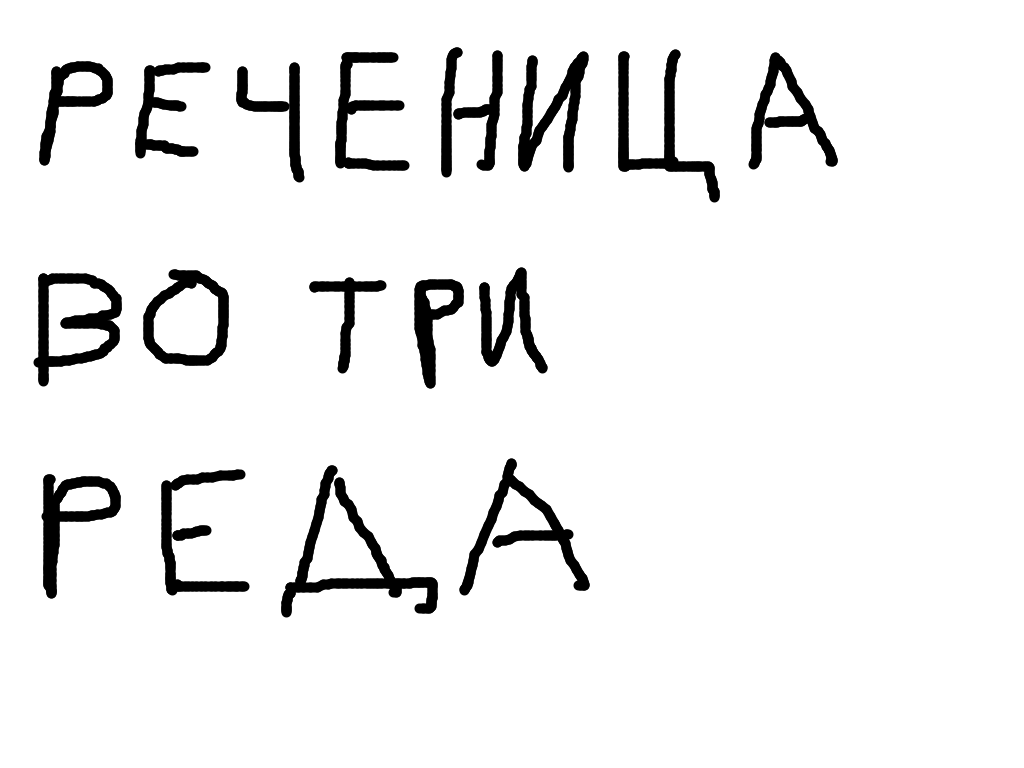 РЕЧЕНИЦА
ВО ТРИ
РЕДА